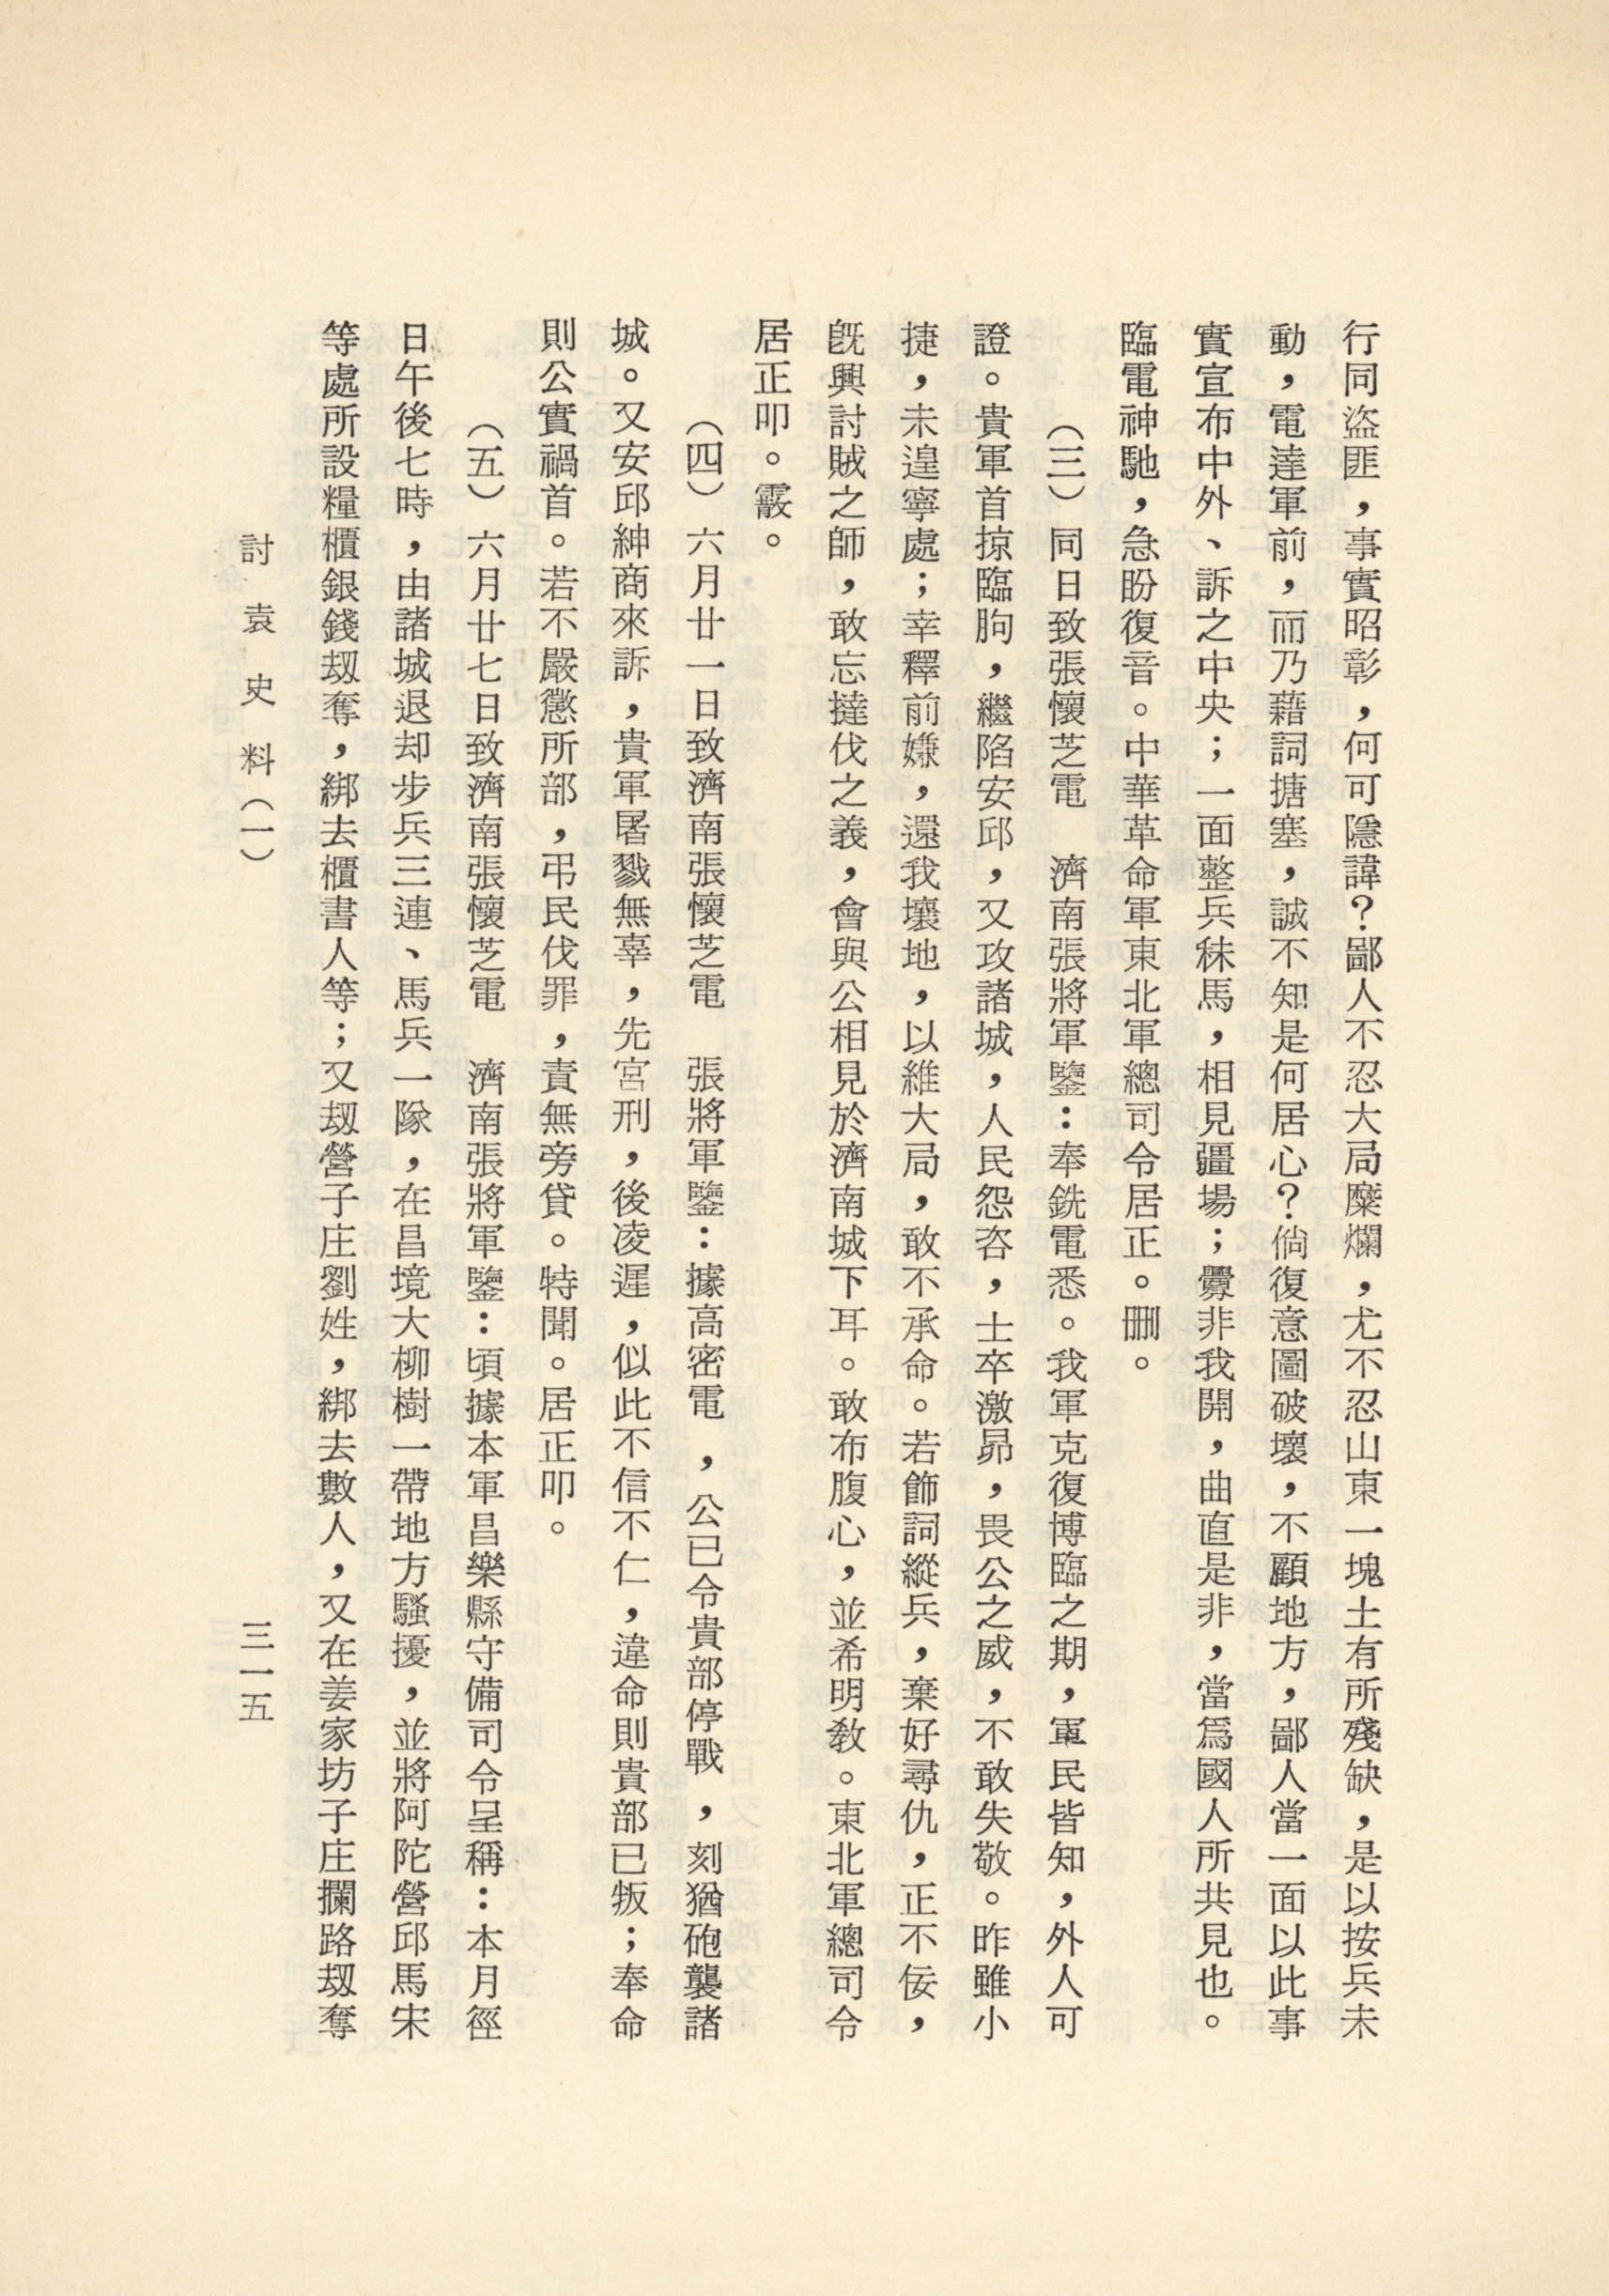 行同盜匪，事實昭彰，何可隱諱？鄙人不忍大局糜爛，尤不忍山東一塊土有所殘缺，是以按兵未
動，電達軍前，而乃藉詞搪塞，誠不知是何居心？倘復意圖破壞，不顧地方，鄙人當一面以此事
實宣布中外、訴之中央；一面整兵秣馬，相見疆場；釁非我開，曲直是非，當爲國人所共見也。
臨電神馳，急盼復音。中華革命軍東北軍總司令居正。删。
（三）同日致張懷芝電　濟南張將軍鑒：奉銑電悉。我軍克復博臨之期，軍民皆知，外人可
證。貴軍首掠臨朐，繼陷安邱，又攻諸城，人民怨咨，士卒激昴，畏公之威，不敢失敬。昨雖小
捷，未遑寧處；幸釋前嫌，還我壤地，以維大局，敢不承命。若飾詞縱兵，棄好尋仇，正不佞，
旣興討賊之師，敢忘撻伐之義，會與公相見於濟南城下耳。敢布腹心，並希明教。東北軍總司令
居正叩。霰。
（四）六月廿一日致濟南張懷芝電　張將軍鑒：據高密電，公已令貴部停戰，刻猶砲襲諸
城。又安邱紳商來訴，貴軍屠戮無辜，先宮刑，後凌遲，似此不信不仁，違命則貴部已叛；奉命
則公實禍首。若不嚴懲所部，弔民伐罪，責無旁貸。特聞。居正叩。
（五）六月廿七日致濟南張懷芝電　濟南張將軍鑒：頃據本軍昌樂縣守備司令呈稱：本月徑
日午後七時，由諸城退却步兵三連、馬兵一隊，在昌境大柳樹一帶地方騷擾，並將阿陀營邱馬宋
等處所設糧櫃銀錢刼奪，綁去櫃書人等；又刼營子庄劉姓，綁去數人，又在姜家坊子庄攔路刼奪
討袁史料（一）
三一五